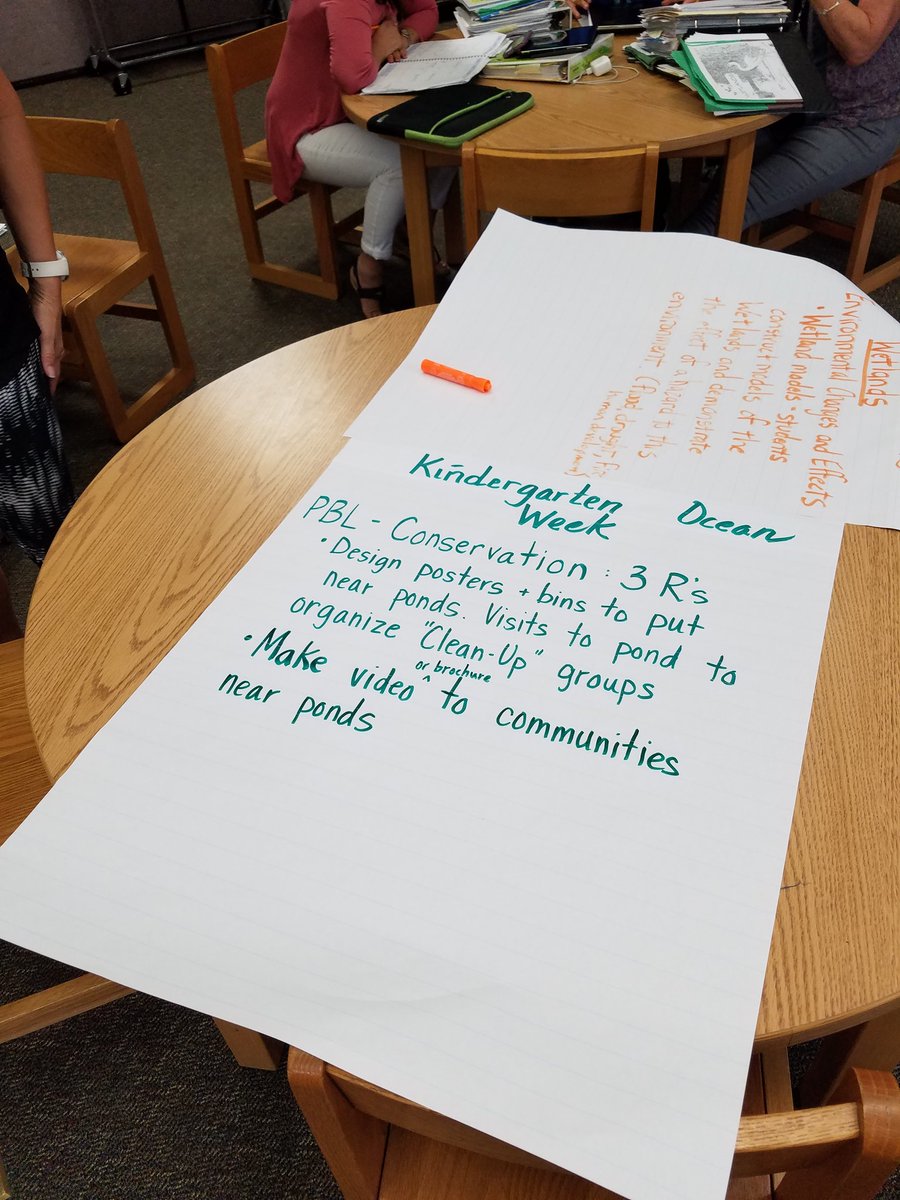 Kindergarten Ocean
Week
PBL - Conservation : 3 R's
• Design posters + bins to put
near ponds. Visits to pond to
organize "Clean-Up" groups
• Make video ^ or brochure to communities
near ponds
Wetlands
Environmental Changes and Effects
• Wetland models - students
construct models of the
Wetlands and demonstrate
the effect of a hazard to this
environment. (flood, drought, fire
human development)